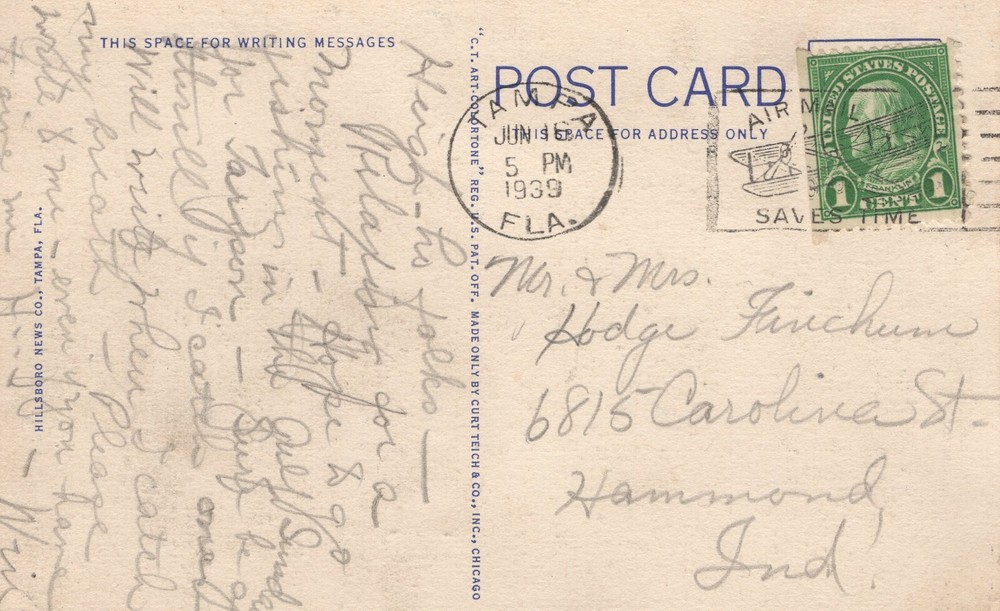 THIS SPACE FOR WRITING MESSAGES
Heigh-ho folks —
for a
moment — Hope to go
fishing in the Gulf Sunday
for Tarpon — Sure be a
thrill if I catch one
Will write when I catch
my breath — Please
write to me — even if you have
to give me
HILLSBORO NEWS CO., TAMPA, FLA.
"C.T. ART-COLORTONE" REG. U.S. PAT. OFF. MADE ONLY BY CURT TEICH & CO., INC., CHICAGO
POST CARD
THIS SPACE FOR ADDRESS ONLY
TAMPA
JUN 16
5 PM
1939
FLA.
AIR M
SAVES TIME
UNITED STATES POSTAGE
FRANKLIN
1 CENT 1
Mr. & Mrs.
Hodge Finchum
6815 Carolina St.
Hammond,
Ind.